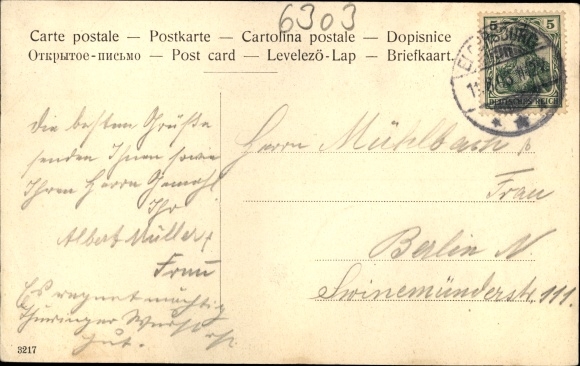 6303
Carte postale — Postkarte — Cartolina postale — Dopisnice
Открытое-письмо — Post card — Levelező-Lap — Briefkaart.
5 5
DEUTSCHES REICH
Die besten Grüße
senden Ihnen sowie
Ihren Herrn Gemahl
Ihr
Albert Müller
Frau
Es regnet mächtig
Thüringer Wurst
gut.
Herrn Mühlbach
Frau
Berlin N.
Swinemünderstr. 111.
3217